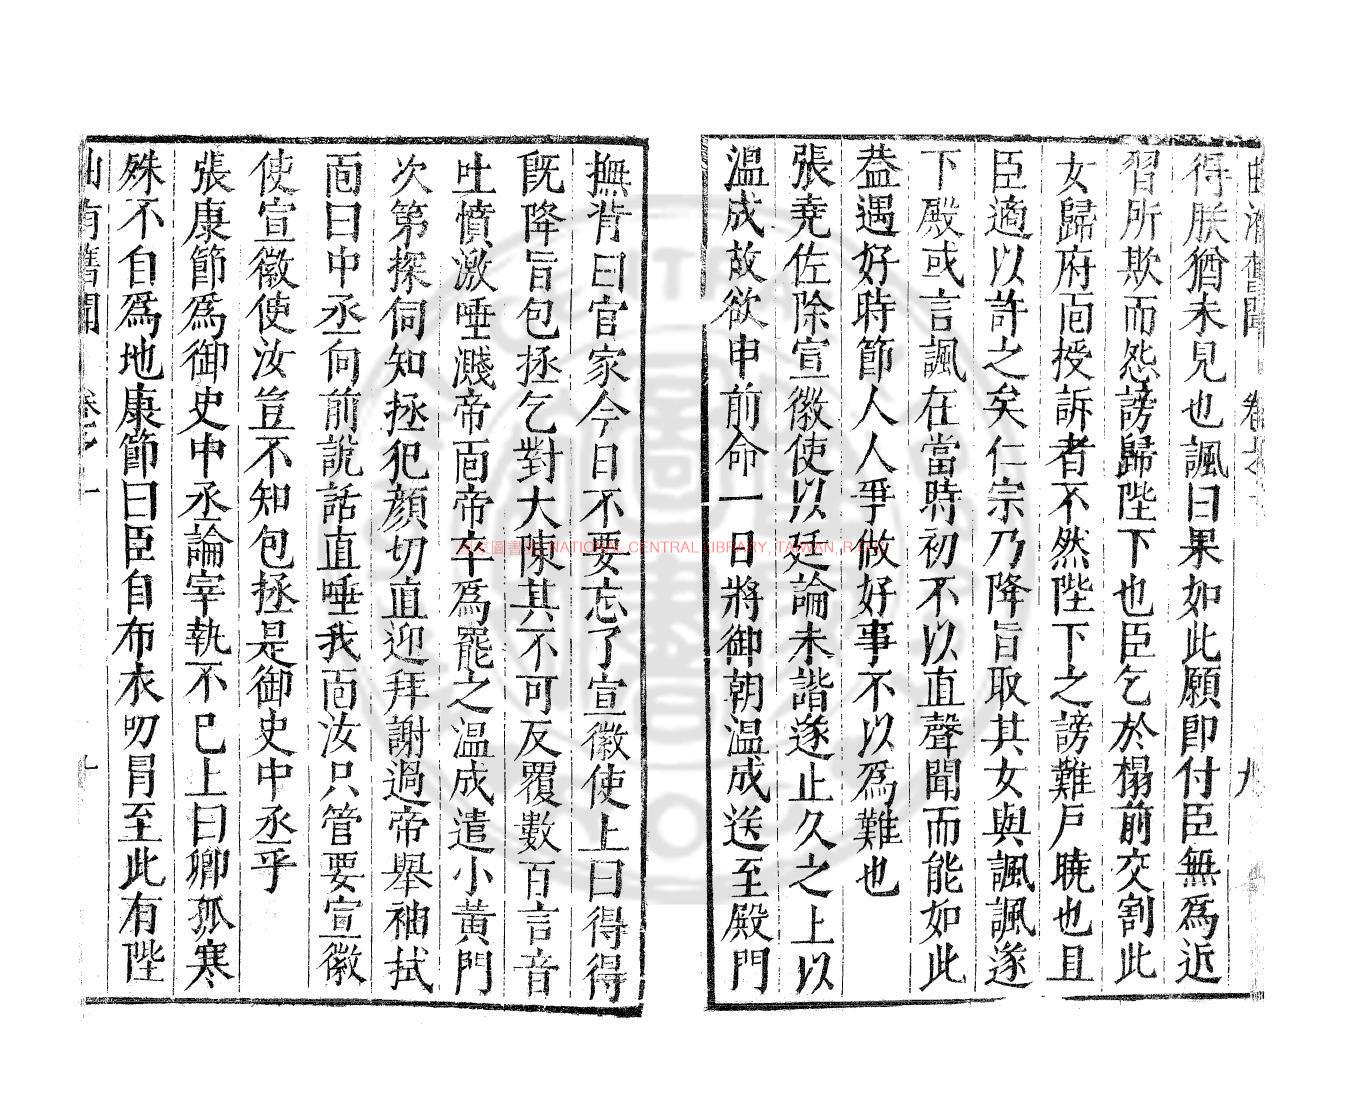 得朕猶未見也諷曰果如此願即付臣無爲近
習所欺而怨謗歸陛下也臣乞於榻前交割此
女歸府面授訴者不然陛下之謗難戶曉也且
臣適以許之矣仁宗乃降旨取其女與諷諷遂
下殿或言諷在當時初不以直聲聞而能如此
葢遇好時節人人爭做好事不以爲難也
張堯佐除宣徽使以廷論未諧遂止久之上以
溫成故欲申前命一日將御朝溫成送至殿門
撫背曰官家今日不要忘了宣徽使上曰得得
旣降旨包拯乞對大陳其不可反覆數百言音
吐憤激唾濺帝面帝卒爲罷之溫成遣小黃門
次第探伺知拯犯顏切直迎拜謝過帝舉袖拭
面曰中丞向前說話直唾我面汝只管要宣徽
使宣徽使汝豈不知包拯是御史中丞乎
張康節爲御史中丞論宰執不已上曰卿孤寒
殊不自爲地康節曰臣自布衣叨冒至此有陛
國家圖書館 NATIONAL CENTRAL LIBRARY, TAIWAN, R.O.C